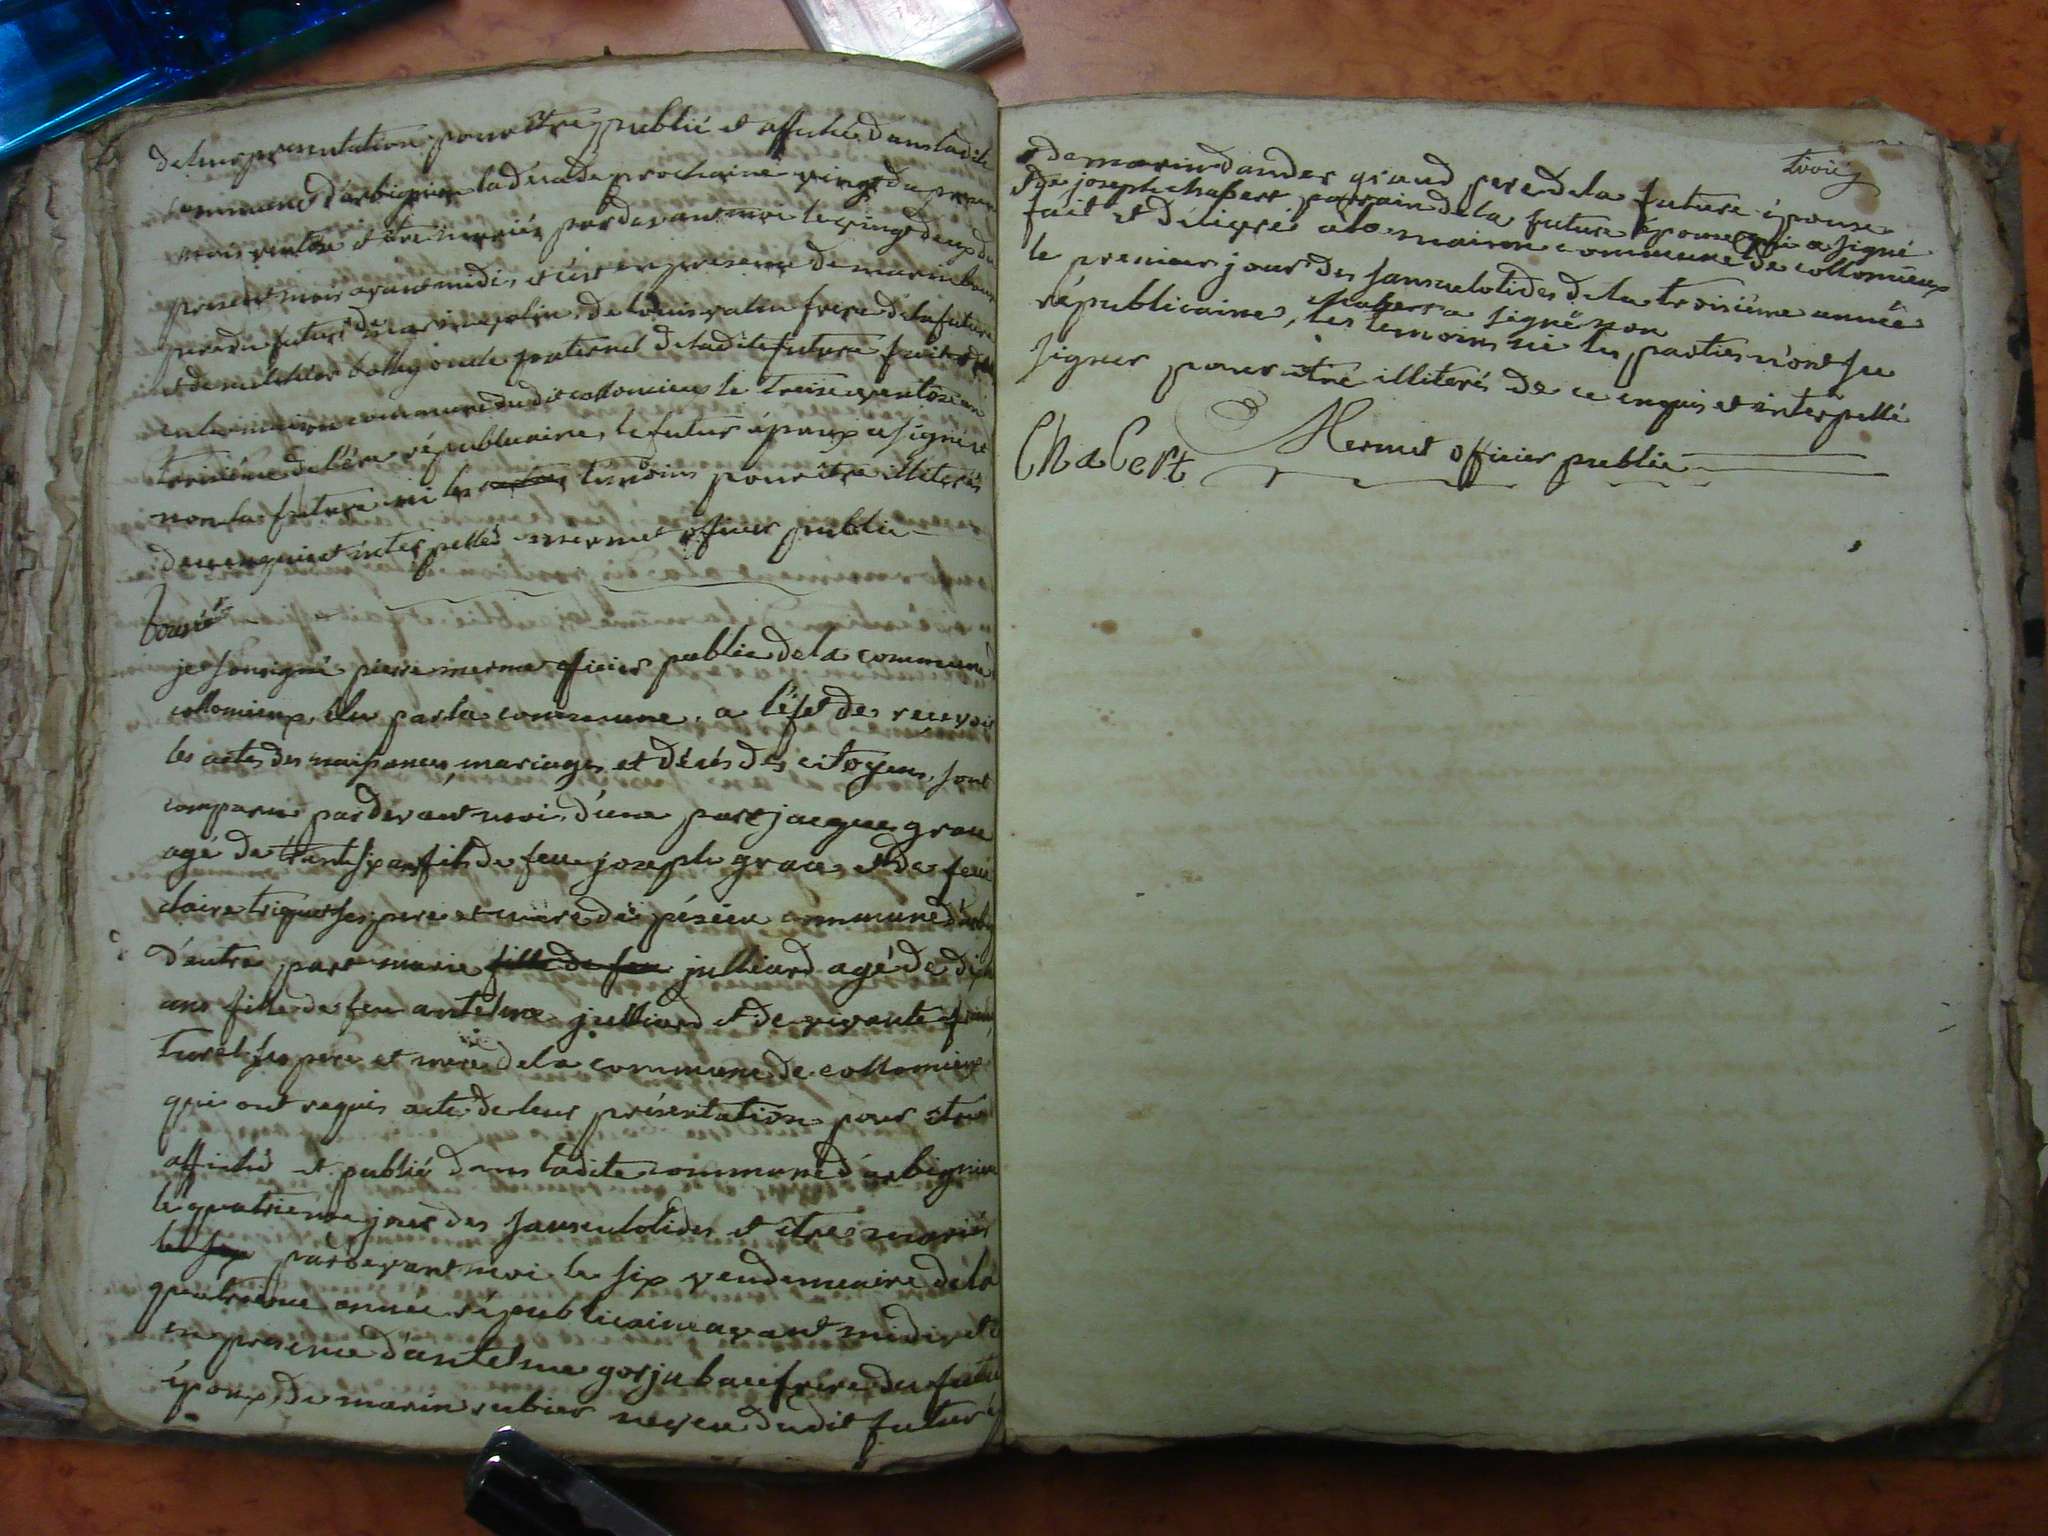 de leur presentation pour être publié et affiché dans ladite
commune d'arbignieu la décade prochaine vingt du present
mois ventose et être mariés pardevant moi le vingt deux du
present mois avant midi, et c'est en presence de marin
pere du futur de de louis valin frere de la future
et de melchior oncle paternel de ladite future fait
en la maison commune dudit collomieux le treize ventose an
troisième de l'ére républicaine, le futur époux a signé et
non la future ni les temoins pour être illiterés
de ce enquis et interpellés mermet officier public
je soussigné pierre mermet officier public de la commune
collomieux, élu par la commune, a l'éfet de recevoir
les actes des naissances, mariages et décés des citoyens, sont
comparus pardevant moi, d'une part jacque grau
agé de trente six ans fils de feu joseph grau et de feu
claire triquet ses pere et mere de péxieu commune
d'autre part marie fille de feu julliard agé de
ans fille de feu antelme julliard et de vivante
turel ses pere et mere de la commune de collomieux
qui ont requis acte de leur présentation pour être
affiché et publié dans ladite commune d'arbignieu
le quatrieme jour des sansculotides et être mariés
le six pardevant moi le six vendemiaire de la
quatrieme année républicaine avant midi et
en presence d'antelme gorju baufrere du futur
époux, de marin cubier neveu dudit futur
de marin dander grand pere de la future épouse
et de joseph chabert parrain de la future épouse qui a signé
fait et déligeré a la maison commune de collomieux
le premier jour des sansculotides de la troisième année
républicaine, chabert a signé non
les temoins ni les parties n'ont su
signer pour être illiterés de ce enquis et interpellé
Chabert Mermet officier public